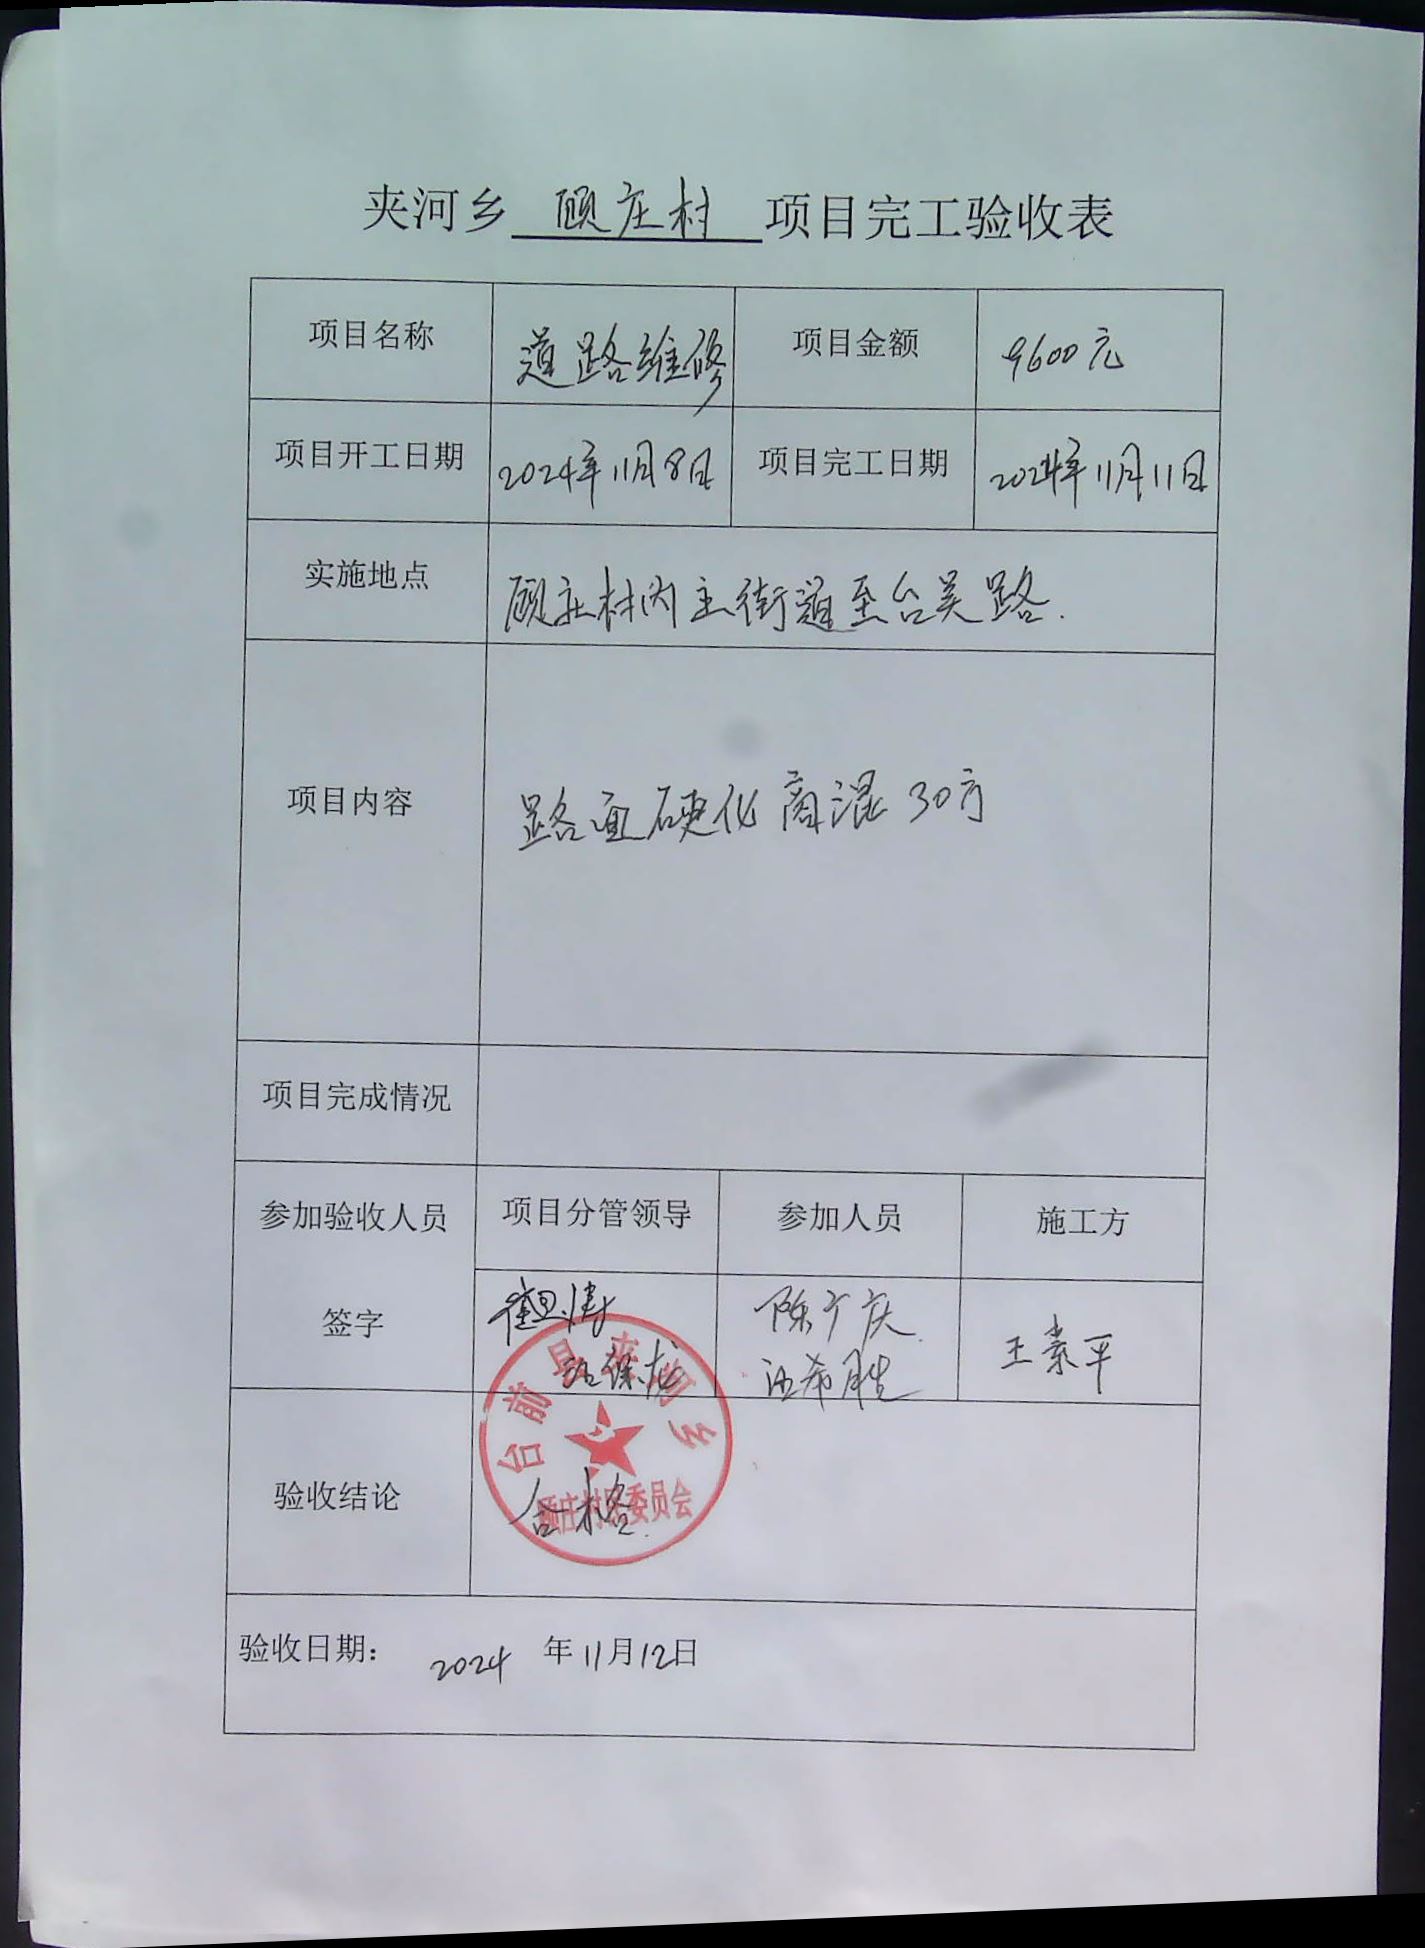 夹河乡 顾庄村 项目完工验收表
项目名称 道路维修 项目金额 9600元
项目开工日期 2024年11月8日 项目完工日期 2024年11月11日
实施地点 顾庄村内主街道至台吴路.
项目内容 路面硬化商混30方
项目完成情况
参加验收人员 项目分管领导 参加人员 施工方
签字 陈广庆 王素平
保龙 希胜
台前县夹河乡
顾庄村民委员会
验收结论 合格.
验收日期： 2024 年11月12日